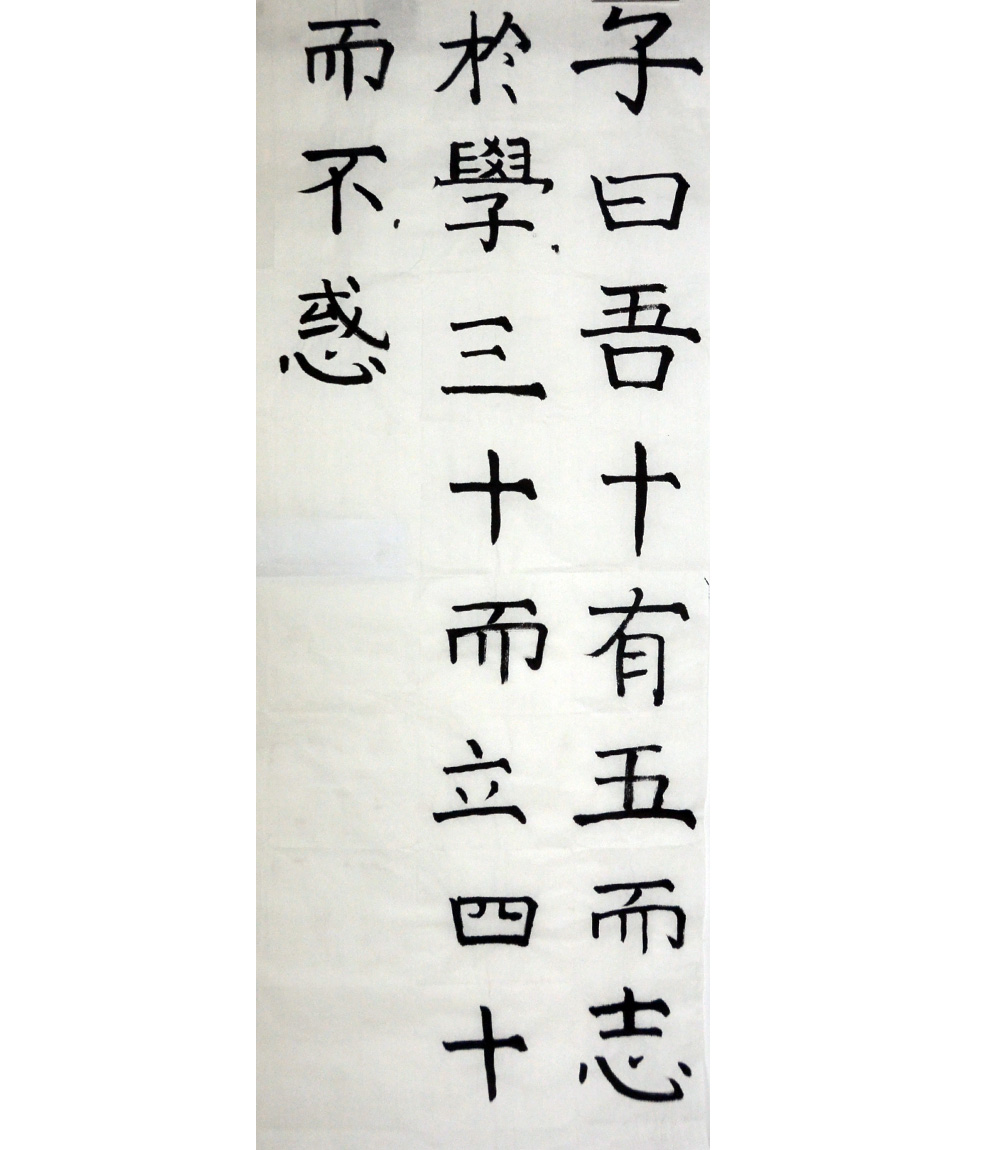 子曰吾十有五而志
於學三十而立四十
而不惑